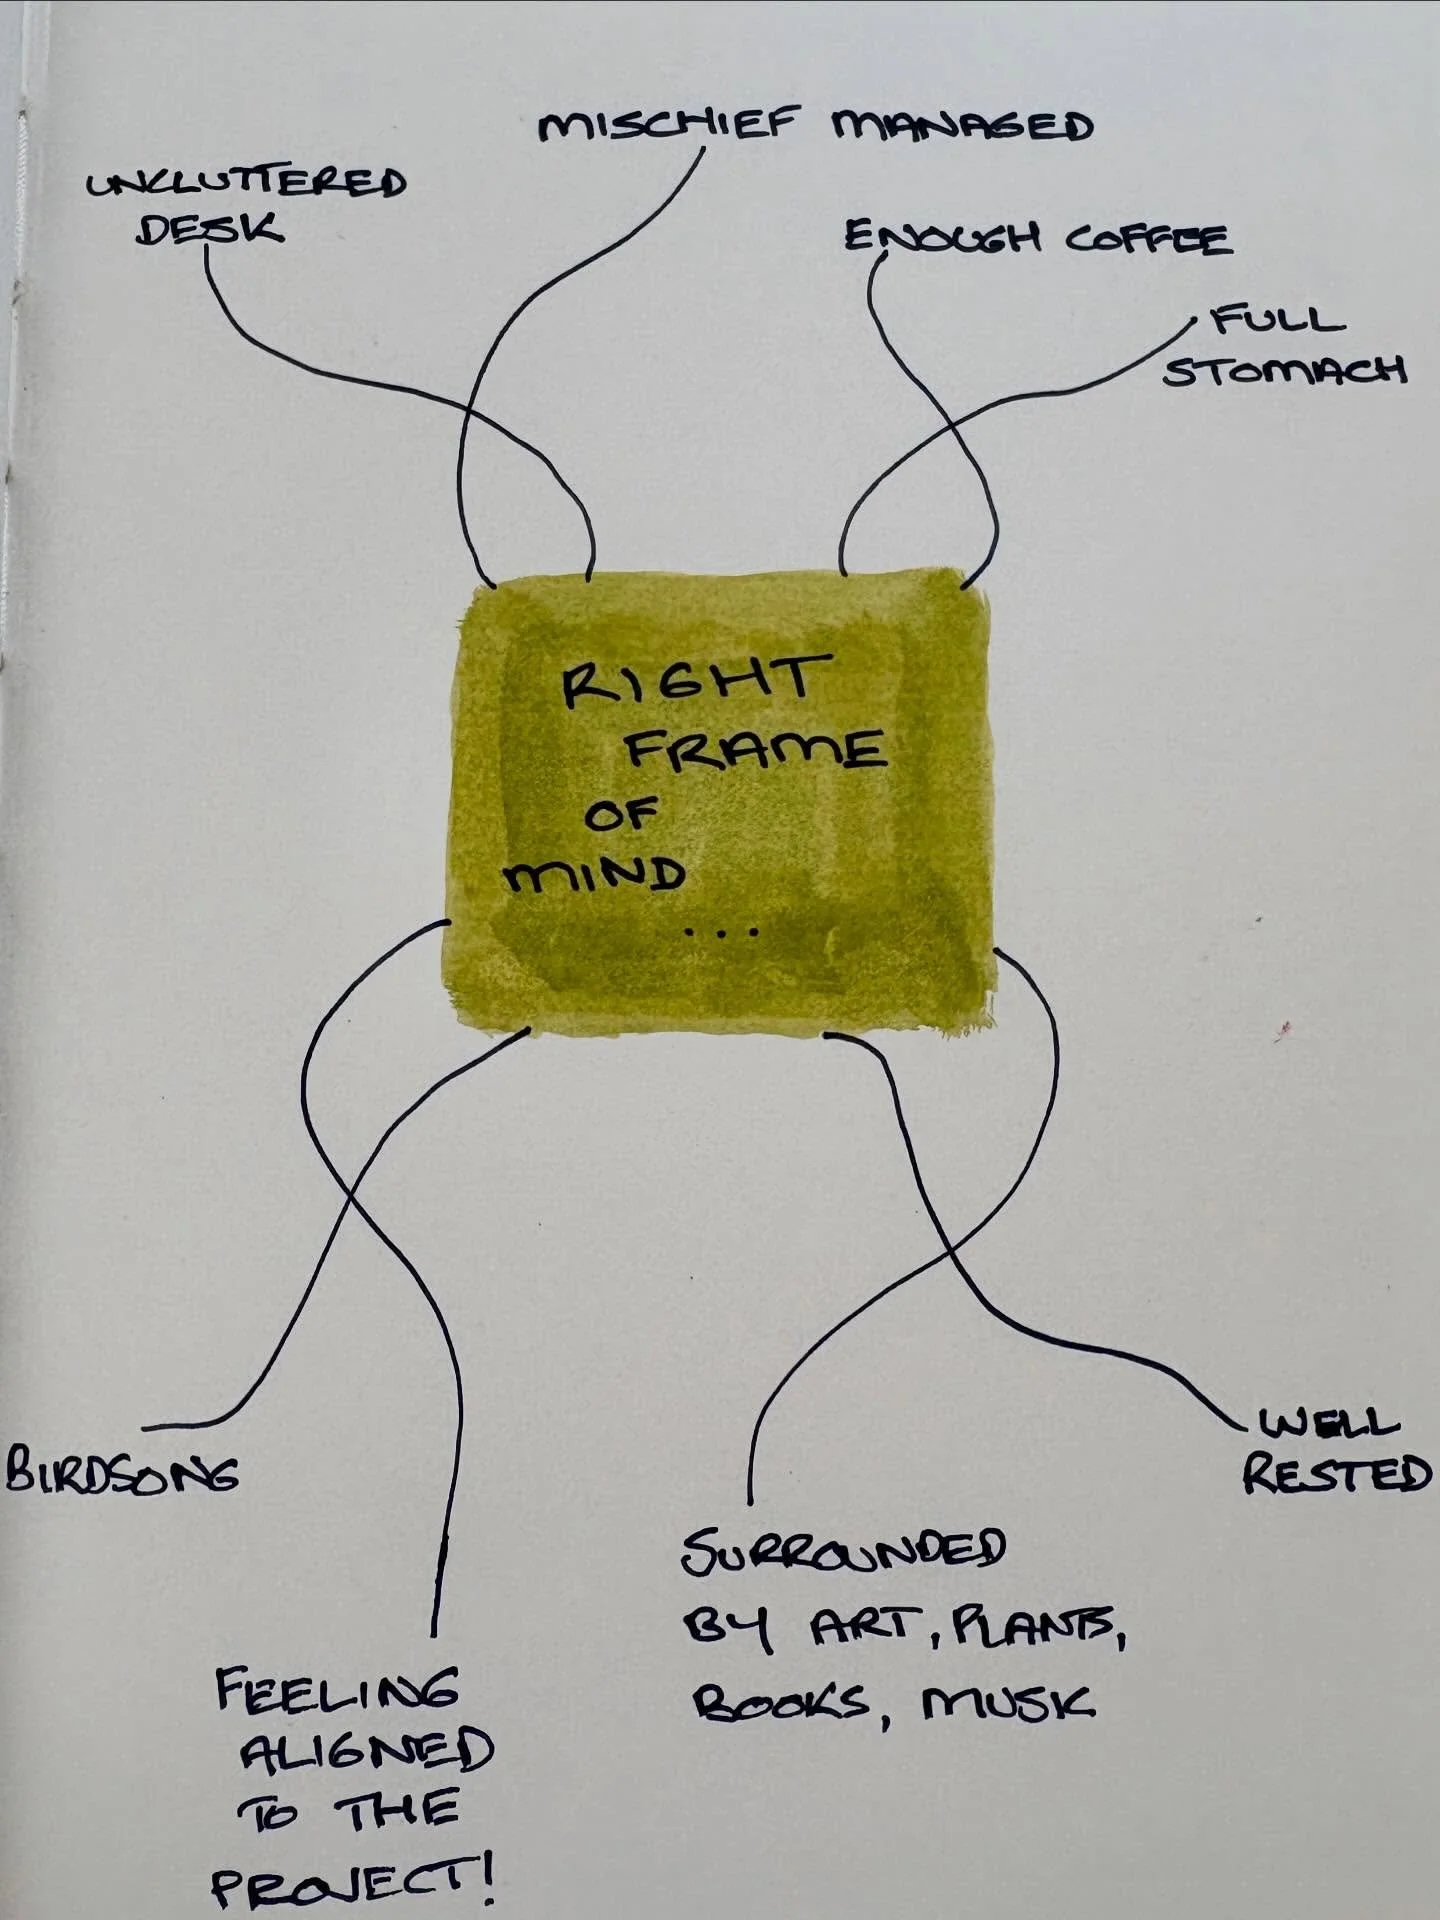 MISCHIEF MANAGED
UNCLUTTERED
DESK
ENOUGH COFFEE
FULL
STOMACH
RIGHT
FRAME
OF
MIND
...
BIRDSONG
WELL
RESTED
SURROUNDED
BY ART, PLANTS,
BOOKS, MUSIC
FEELING
ALIGNED
TO THE
PROJECT!